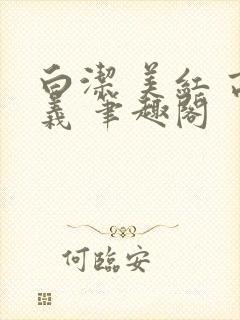 白潔 美紅 高
義 筆趣閣
何臨安